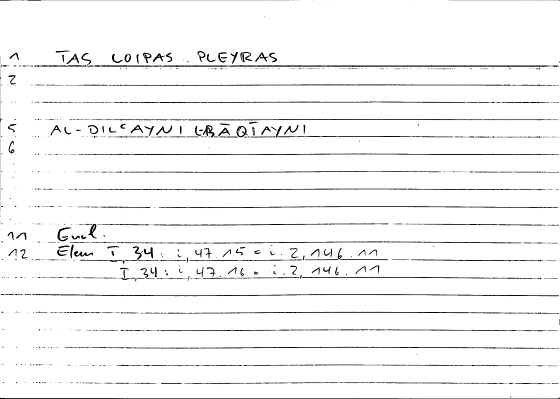 1 TAS LOIPAS PLEYRAS
2
5 AL-DILʿAYNI L-BĀQĪAYNI
6
11 Eucl.
12 Elem I, 34 : i, 47.15 = i.2, 146.11
I, 34 : i, 47.16 = i.2, 146.11